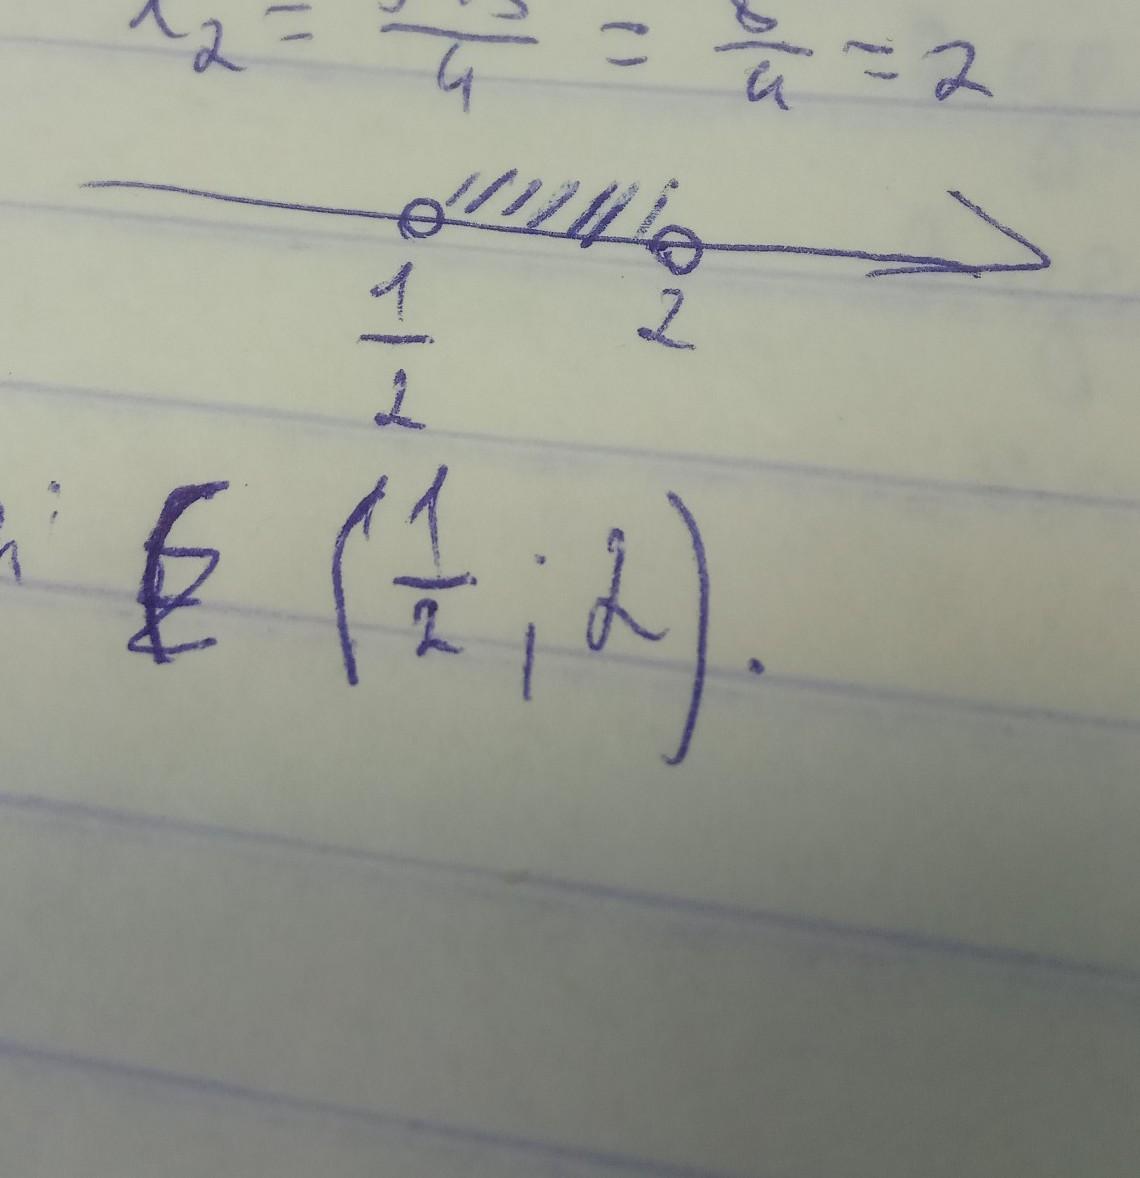 x₂ = 5+3/4 = 8/4 = 2
1/2 2
∈ (1/2 ; 2).